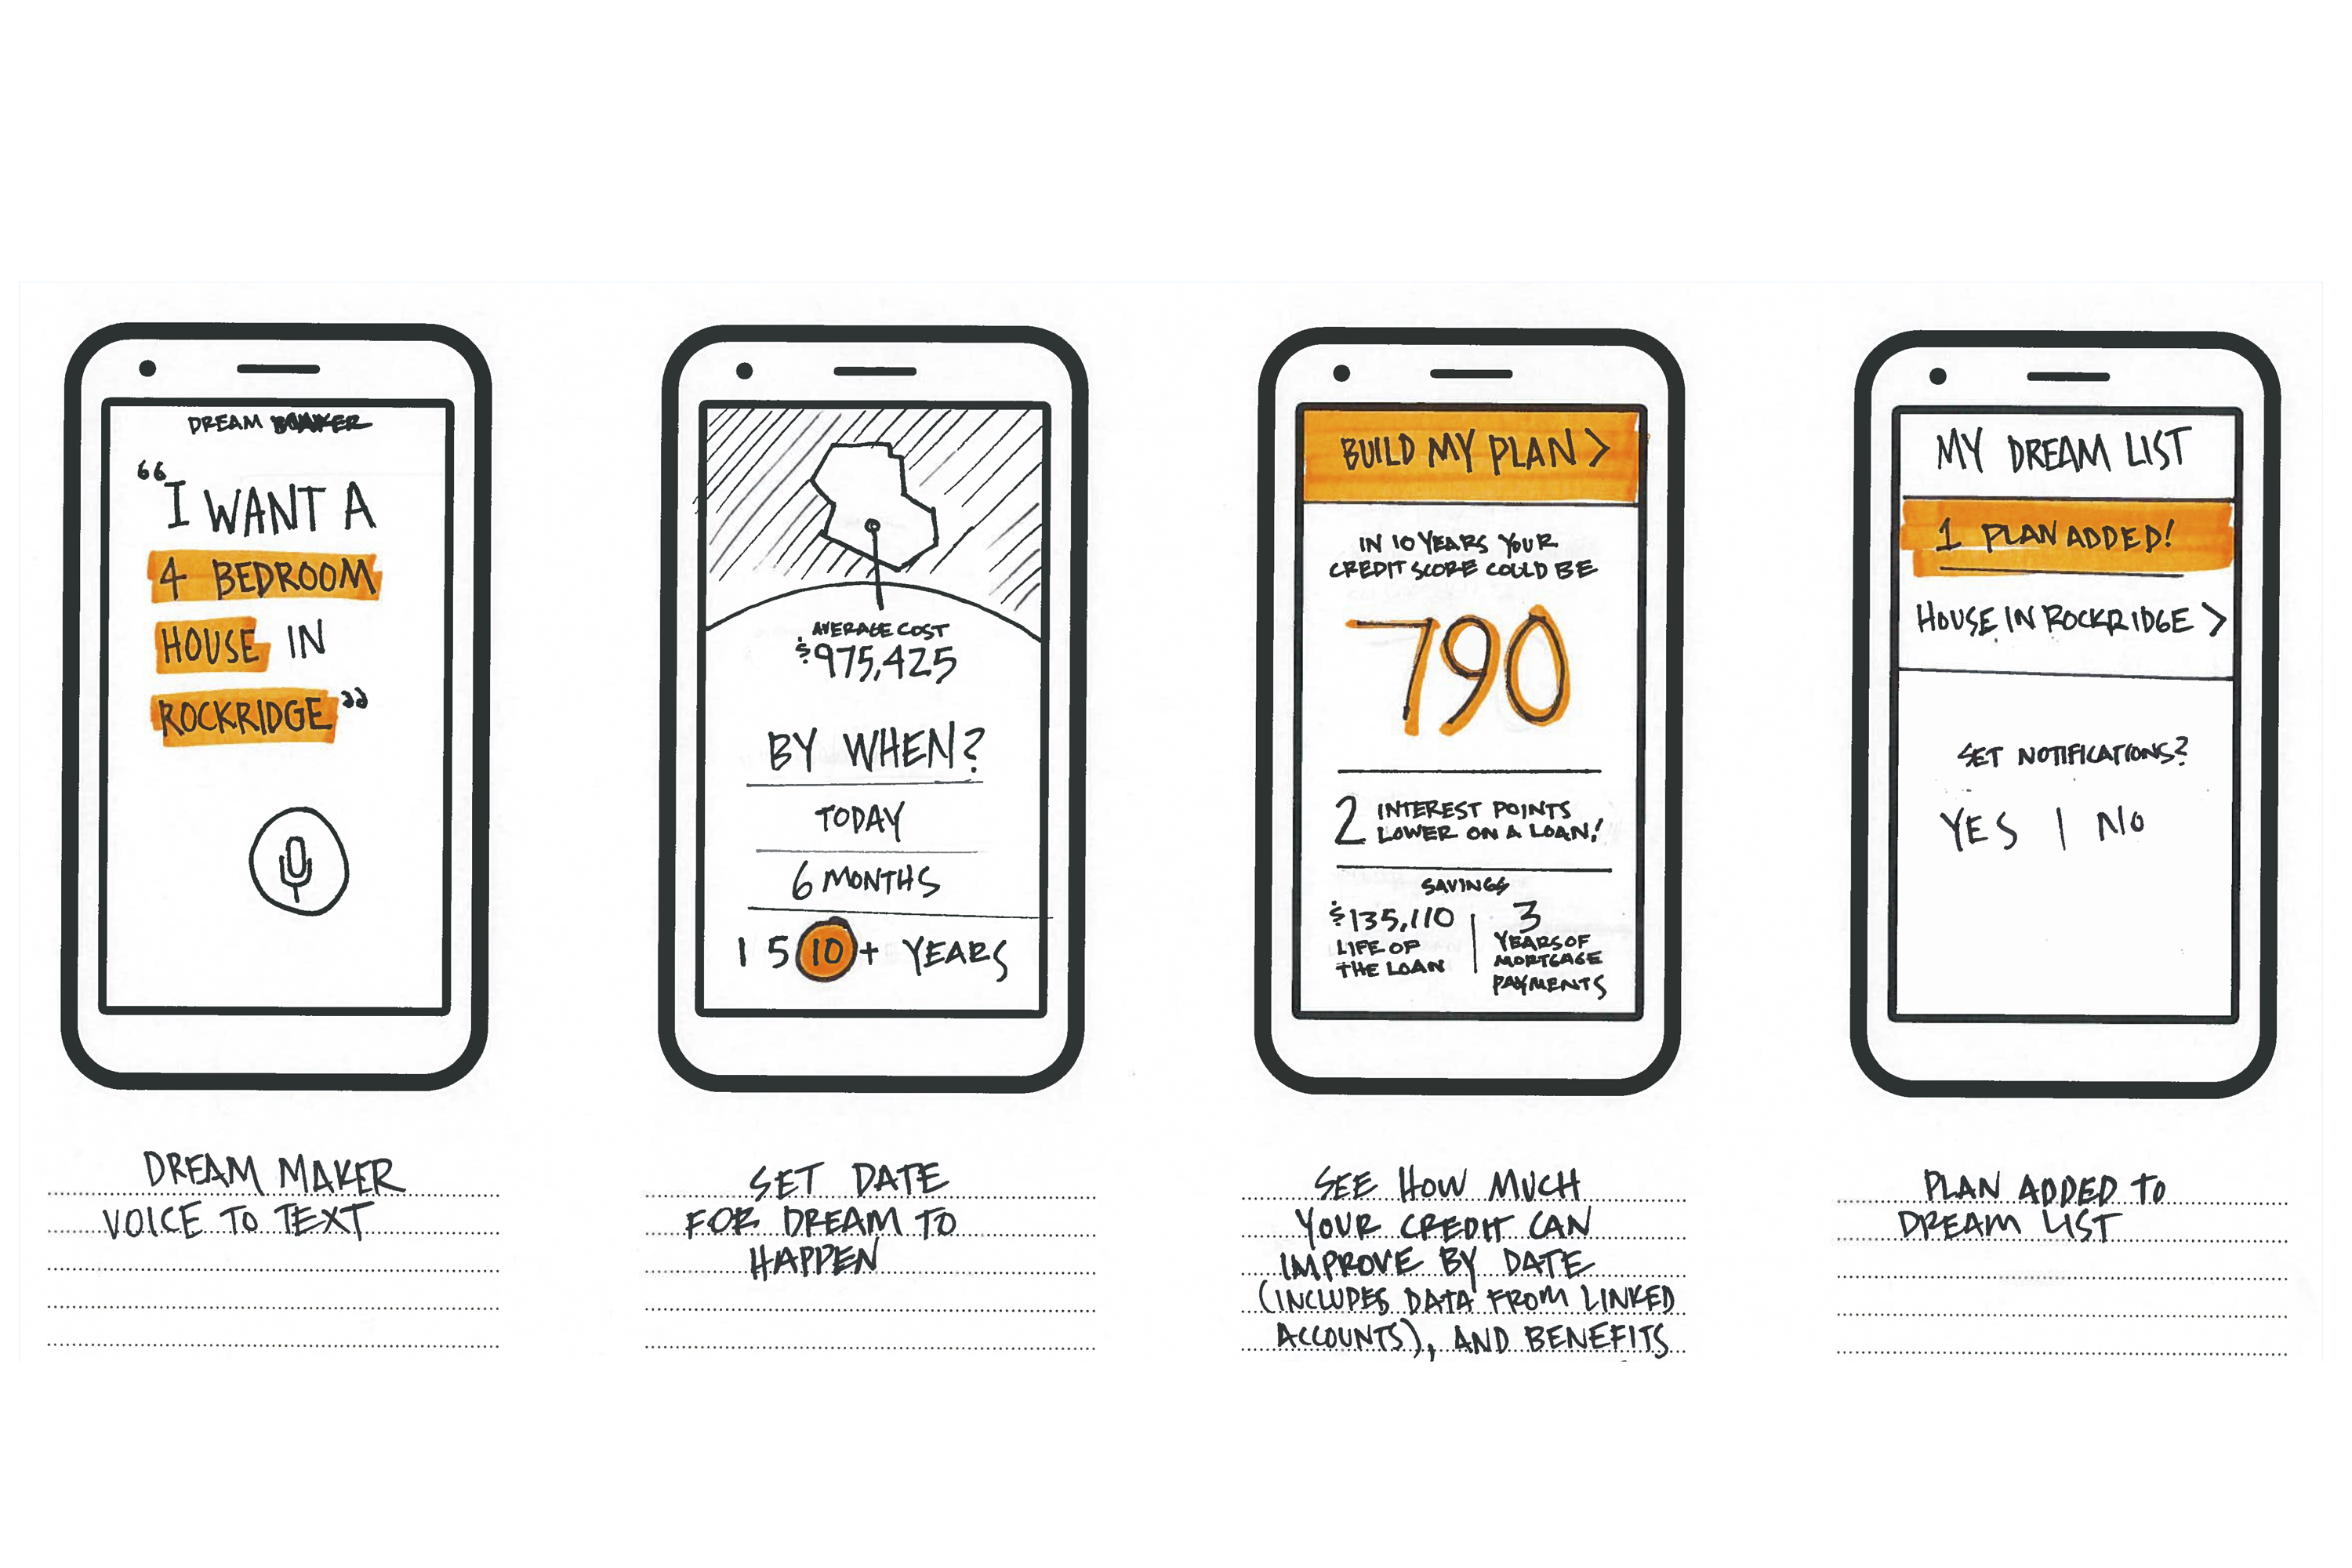 DREAM MAKER
"I WANT A
4 BEDROOM
HOUSE IN
ROCKRIDGE"
DREAM MAKER
VOICE TO TEXT
AVERAGE COST
$975,425
BY WHEN?
TODAY
6 MONTHS
1 5 10+ YEARS
SET DATE
FOR DREAM TO
HAPPEN
BUILD MY PLAN >
IN 10 YEARS YOUR
CREDIT SCORE COULD BE
790
2 INTEREST POINTS
LOWER ON A LOAN!
SAVINGS
$135,110
LIFE OF
THE LOAN
3
YEARS OF
MORTGAGE
PAYMENTS
SEE HOW MUCH
YOUR CREDIT CAN
IMPROVE BY DATE
(INCLUDES DATA FROM LINKED
ACCOUNTS), AND BENEFITS
MY DREAM LIST
1 PLAN ADDED!
HOUSE IN ROCKRIDGE >
SET NOTIFICATIONS?
YES | NO
PLAN ADDED TO
DREAM LIST